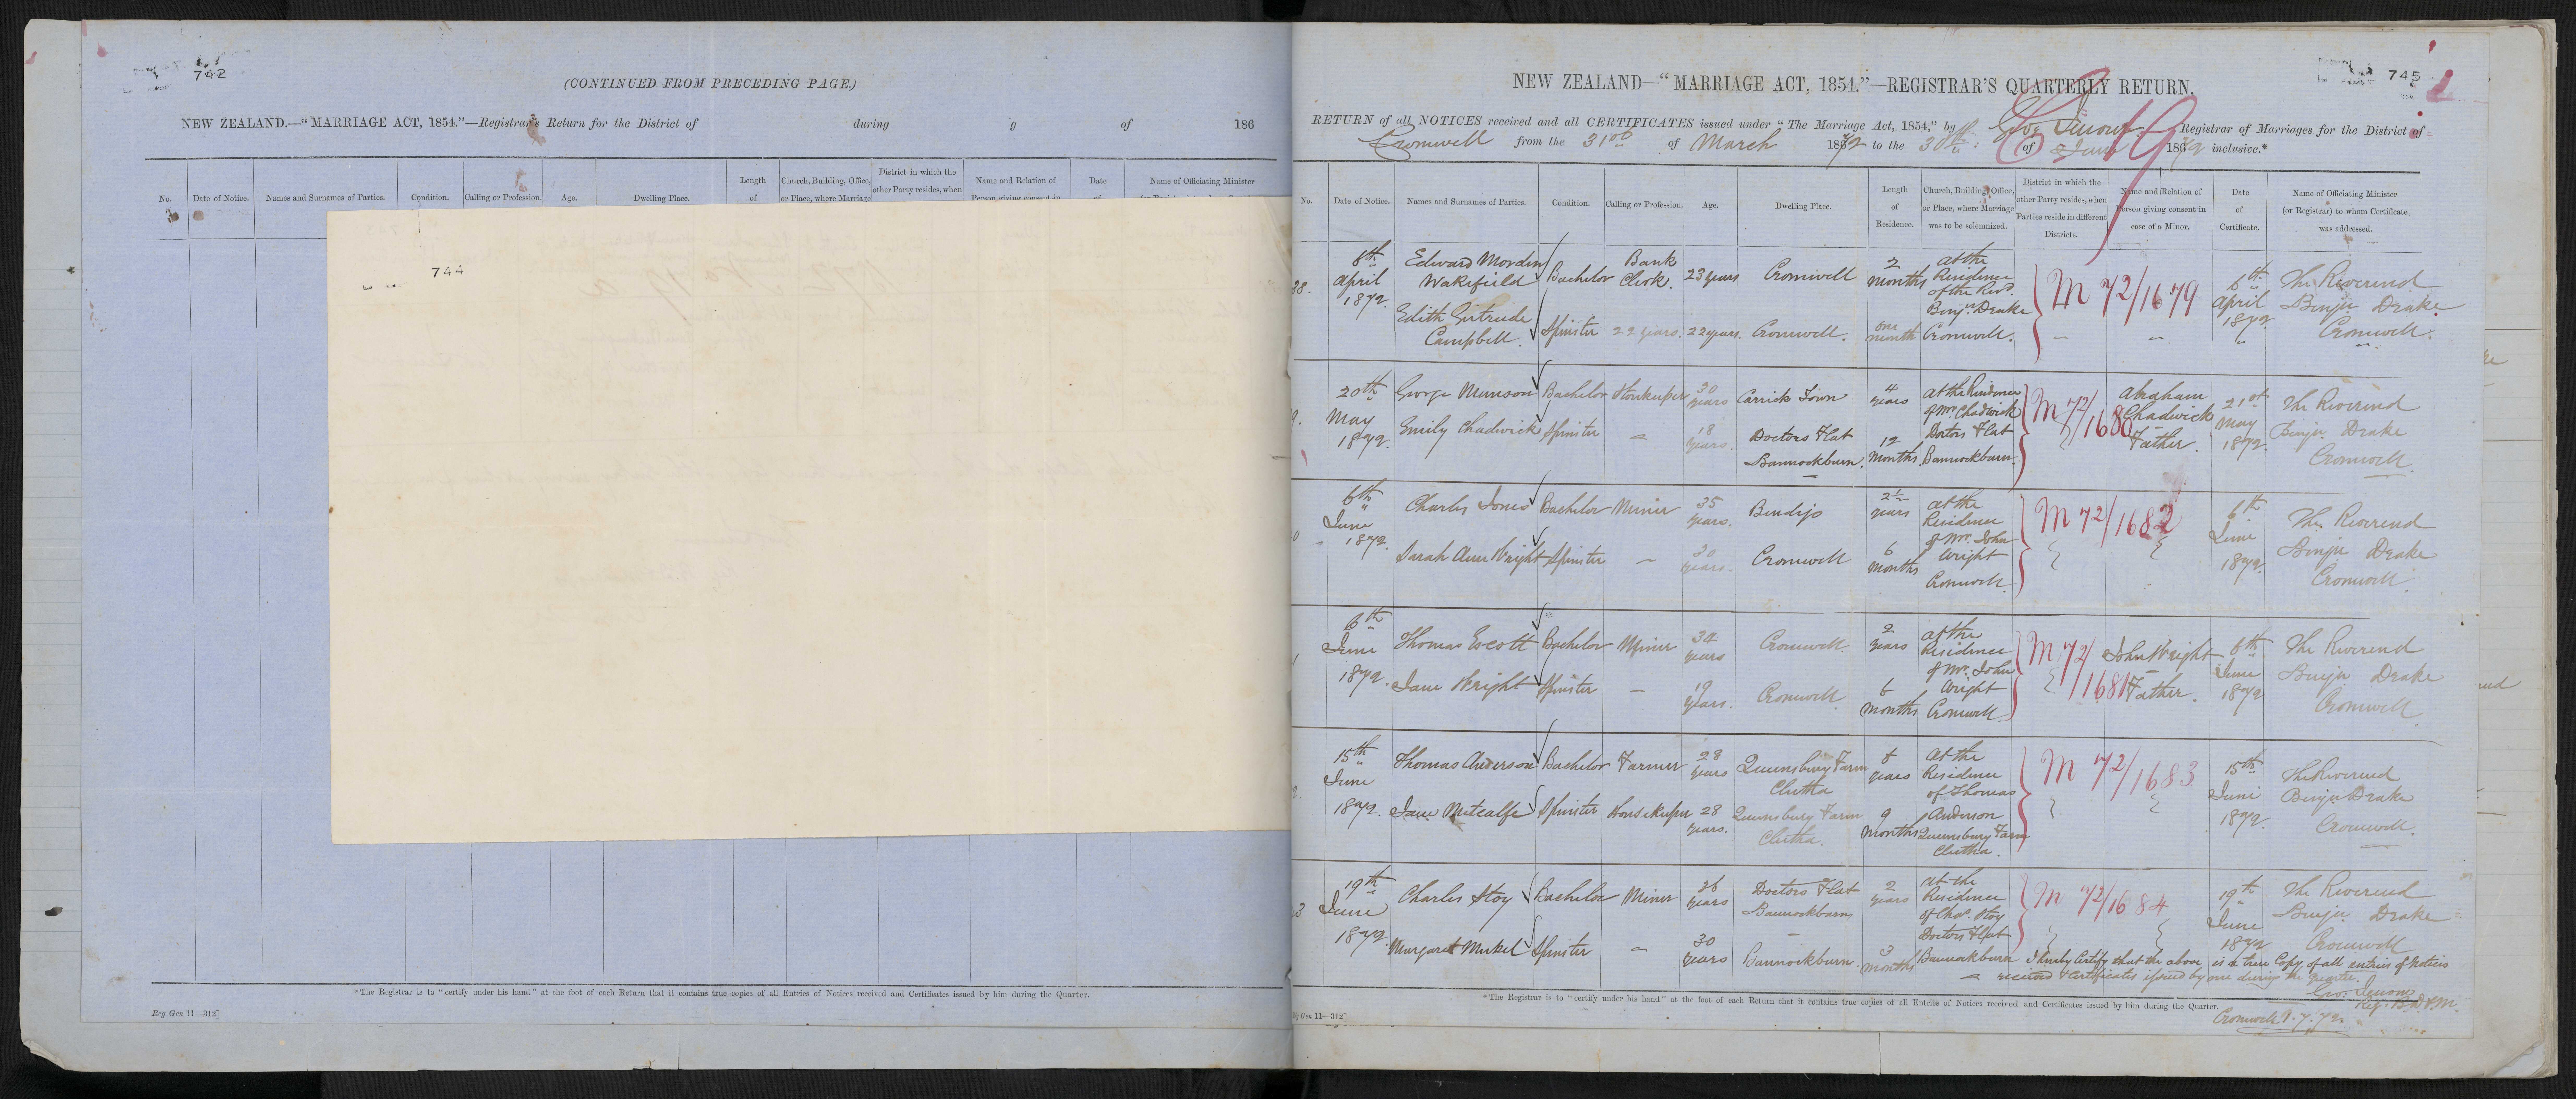 742
(CONTINUED FROM PRECEDING PAGE.)
NEW ZEALAND.—"MARRIAGE ACT, 1854."—Registrar's Return for the District of during y of 186
No.
Date of Notice.
Names and Surnames of Parties.
Condition.
Calling or Profession.
Age.
Dwelling Place.
Length
of
Church, Building, Office,
or Place, where Marriage
District in which the
other Party resides, when
Name and Relation of
Person giving consent in
Date
Name of Officiating Minister
744
*The Registrar is to "certify under his hand" at the foot of each Return that it contains true copies of all Entries of Notices received and Certificates issued by him during the Quarter.
Reg Gen 11—312]
745
NEW ZEALAND—"MARRIAGE ACT, 1854."—REGISTRAR'S QUARTERLY RETURN.
RETURN of all NOTICES received and all CERTIFICATES issued under "The Marriage Act, 1854," by Registrar of Marriages for the District of
Cromwell from the 31st of March 1872 to the 30th of June 1872 inclusive.*
No.
Date of Notice.
Names and Surnames of Parties.
Condition.
Calling or Profession.
Age.
Dwelling Place.
Length
of
Residence.
Church, Building, Office,
or Place, where Marriage
was to be solemnized.
District in which the
other Party resides, when
Parties reside in different
Districts.
Name and Relation of
Person giving consent in
case of a Minor.
Date
of
Certificate.
Name of Officiating Minister
(or Registrar) to whom Certificate
was addressed.
38.
8th
April
1872.
Edward Morden
Wakefield
Bachelor
Bank
Clerk.
23 years
Cromwell
2
months
at the
Residence
of the Revd.
Benjn. Drake
Cromwell.
Edith Gertrude
Campbell.
Spinster
22 years.
22 years.
Cromwell.
one
month
M 72/1679
April
1872
The Reverend
Benjn Drake
Cromwell.
20th
May
1872.
George Munson
Bachelor
Storekeeper
30
years
Carrick Town
4
years
at the Residence
of Mr. Chadwick
Doctors Flat
Bannockburn.
Emily Chadwick
Spinster
18
years.
Doctors Flat
Bannockburn.
12
Months
M 72/
1680
Abraham
Chadwick
Father.
21st
May
1872.
The Reverend
Benjn Drake
Cromwell.
6th
June
1872.
Charles Jones
Bachelor
Miner
35
years.
Bendigo
2½
years
at the
Residence
of Mr. John
Wright
Cromwell.
Sarah Ann Wright
Spinster
30
years.
Cromwell
6
months
M 72/1682
6th
June
1872.
The Reverend
Benjn Drake
Cromwell.
6th
June
1872.
Thomas Escott
Bachelor
Miner
34
years
Cromwell.
2
years
at the
Residence
of Mr. John
Wright
Cromwell.
Jane Wright
Spinster
19
years.
Cromwell.
6
months
M 72/
1681
John Wright
Father.
6th
June
1872
The Reverend
Benjn Drake
Cromwell.
15th
June
1872.
Thomas Anderson
Bachelor
Farmer
28
years
Queensbury Farm
Clutha
8
years
at the
Residence
of Thomas
Anderson
Queensbury Farm
Clutha.
Jane Metcalfe
Spinster
Housekeeper
28
years.
Queensbury Farm
Clutha.
9
months
M 72/1683
15th
June
1872.
The Reverend
Benjn Drake
Cromwell.
19th
June
1872.
Charles Stoy
Bachelor
Miner
36
years
Doctors Flat
Bannockburn
2
years
at the
Residence
of Chas. Stoy
Doctors Flat
Bannockburn
Margaret
Spinster
30
years
Bannockburn.
3
months
M 72/1684
19th
June
1872
The Reverend
Benjn Drake
Cromwell
I hereby Certify that the above is a true Copy of all entries of Notices
received & Certificates issued by me during the quarter.
Reg. B. D. & M.
Cromwell 1.7.72.
*The Registrar is to "certify under his hand" at the foot of each Return that it contains true copies of all Entries of Notices received and Certificates issued by him during the Quarter.
Reg Gen 11—312]